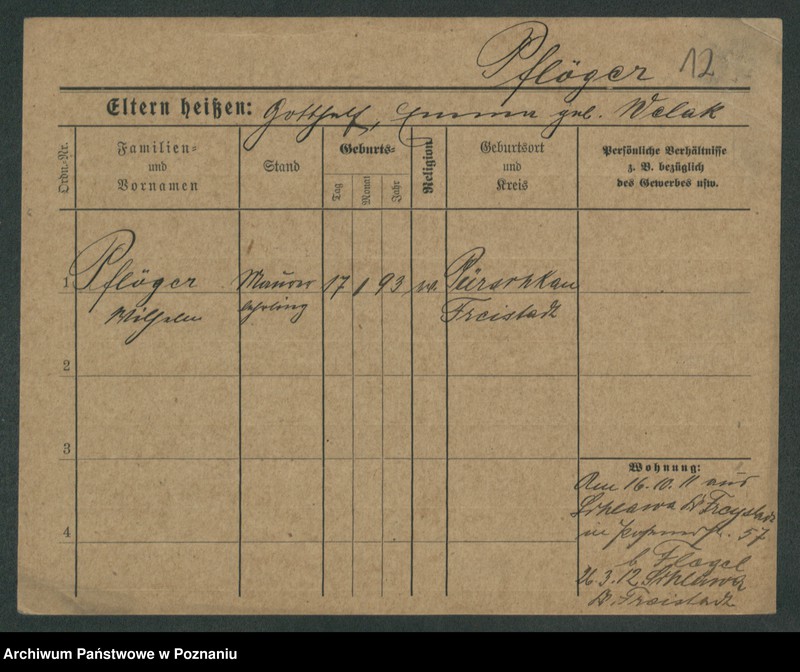 Pflöger 12
Eltern heißen: Gotthelf, Emma geb. Welak
Ordn.-Nr.
Familien-
und
Vornamen
Stand
Geburts-
Tag
Monat
Jahr
Religion
Geburtsort
und
Kreis
Persönliche Verhältnisse
z. B. bezüglich
des Gewerbes usw.
1 Pflöger Maurer 17 1 93 Pürschkau
Wilhelm lehrling Freistadt
2
3
4
Wohnung:
Am 16.10.11 aus
Schlawa Kr Freystadt
in 57
b. Flogel
26.3.12 Schlawa
Kr. Freistadt
Archiwum Państwowe w Poznaniu